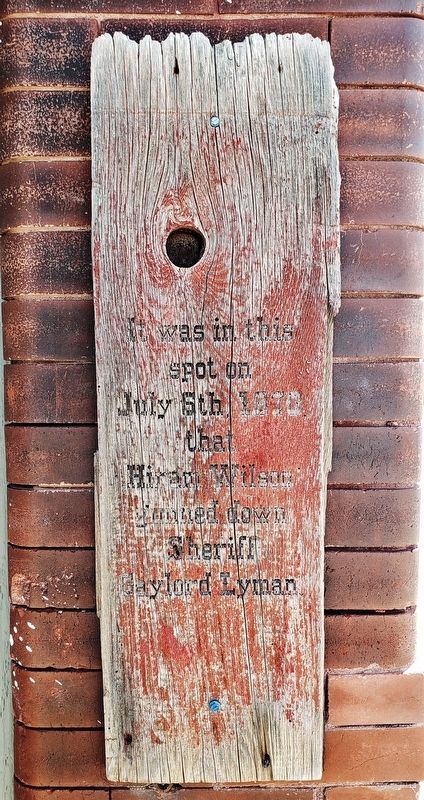 It was in this
spot on
July 6th, 1878
that
Hiram Wilson
gunned down
Sheriff
Gaylord Lyman